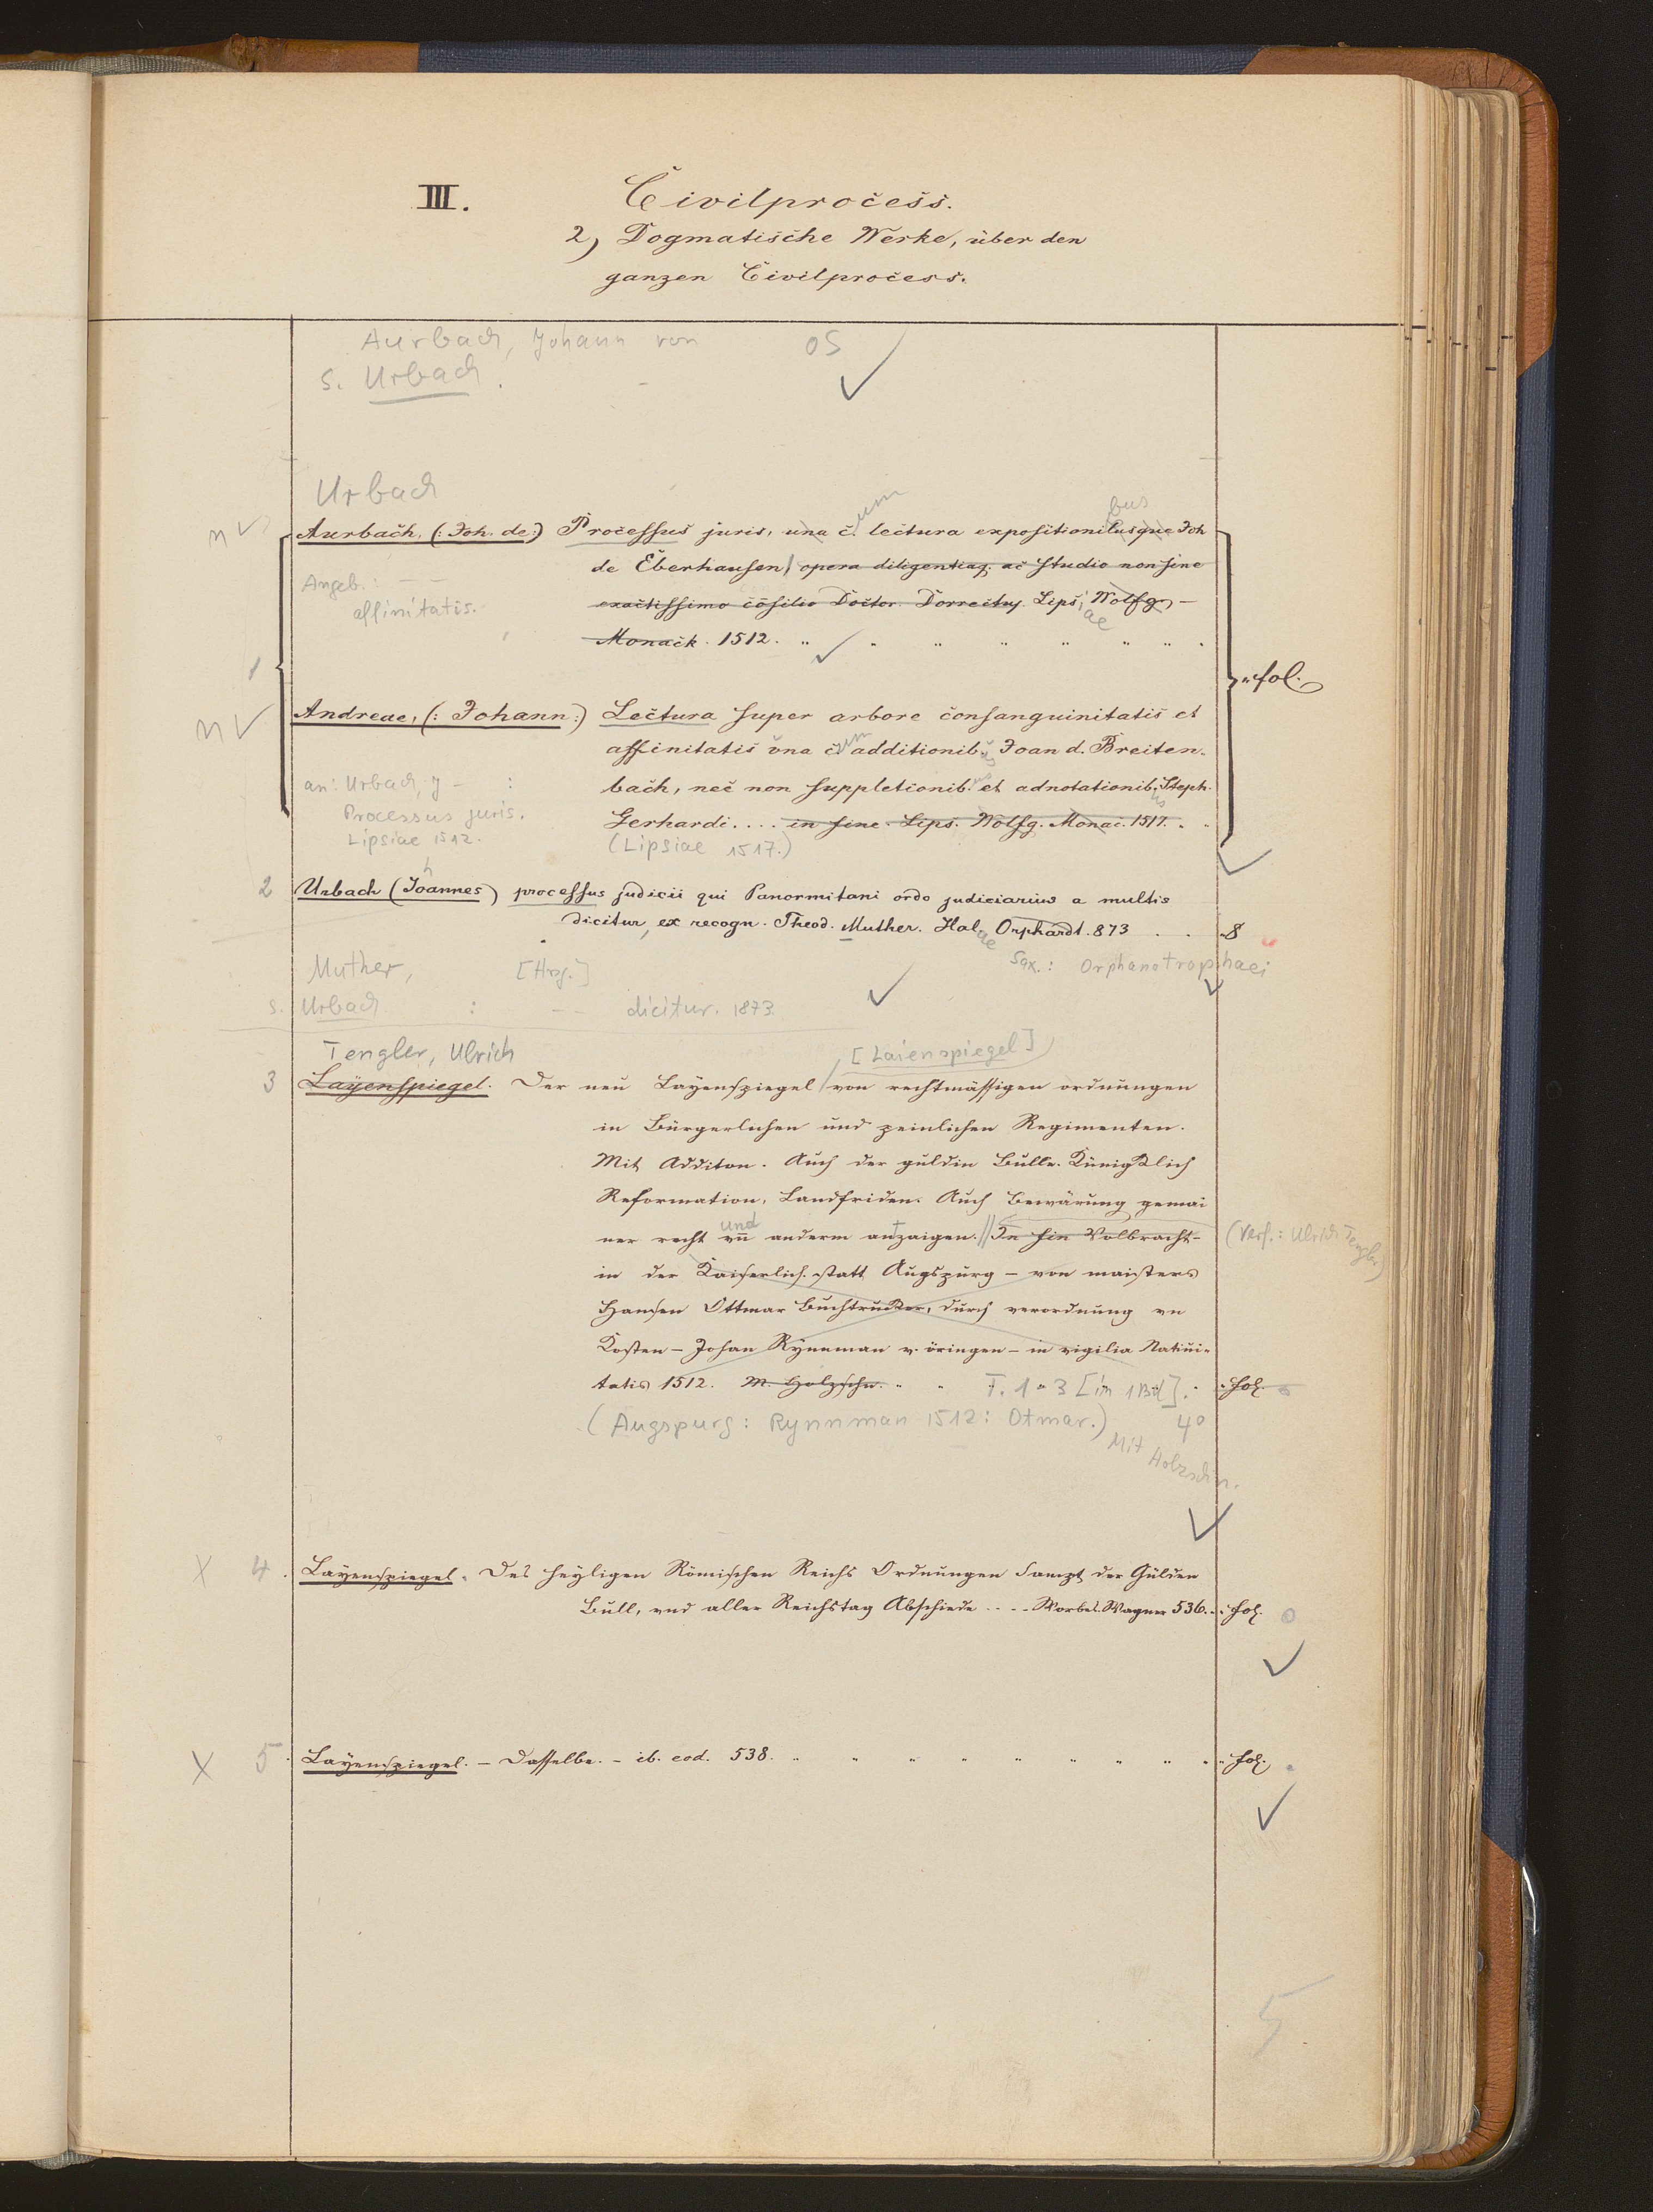 III. Civilprocess.
2) Dogmatische Werke, über den
ganzen Civilprocess.
Aurbach, Johann von OS
s. Urbach.
Urbach
n Aurbach, (: Joh. de:) Processus juris, una c. um lectura expositionibusque bus Joh
de Eberhausen, opera diligentiaq; ac studio non sine
Angeb.: — —
affinitatis.
exactissimo cōsilio Doctor. Dorrecthy. Lips, iae Wolfg. —
Monack. 1512.
1 fol.
n Andreae, (: Johann:) Lectura super arbore consanguinitatis et
affinitatis vna cum additionib. us Joan d. Breiten-
an: Urbach, J — :
bach, nec non suppletionib. us et adnotationib. us Steph.
Processus juris.
Gerhardi .... in fine. Lips. Wolfg. Monac. 1517.
Lipsiae 1512.
(Lipsiae 1517.)
2 Urbach (Johannes) processus judicii qui Panormitani ordo judiciarius a multis
dicitur, ex recogn. Theod. Muther. Halae Orphardt. 873 . . 8
Sax.: Orphanotrophaei
Muther, [Hrsg.]
s. Urbach : — — dicitur. 1873.
Tengler, Ulrich [Laienspiegel]
3 Layenspiegel. Der neu Layenspiegel von rechtmässigen ordnungen
in Bürgerlichen und peinlichen Regimenten.
Mit Additon. Auch der guldin Bulle. Künigklich
Reformation, Landfriden. Auch Bewärung gemai
ner recht vn̄ und anderm antzaigen. // In fin Volbracht-
(Verf.: Ulrich Tengler)
in der Kaiserlich. statt Augspurg — von maisters
Hansen Ottmar Buchtrucker, durch verordnung vn
Kosten — Johan Rynnman v. öringen — in vigilia Nativi-
tatis 1512. M. Holzschn. T. 1-3 [in 1 Bd]. fol.
(Augspurg: Rynnman 1512: Otmar.) 4°
Mit Holzschn.
X 4. Layenspiegel. Des heyligen Römischen Reichs Ordnungen Sampt der Gülden
Bull, vnd aller Reichstag Abschiede .... Worbs. Wagner 536. fol.
X 5. Layenspiegel. — Dasselbe. — ib. eod. 538. fol.
5